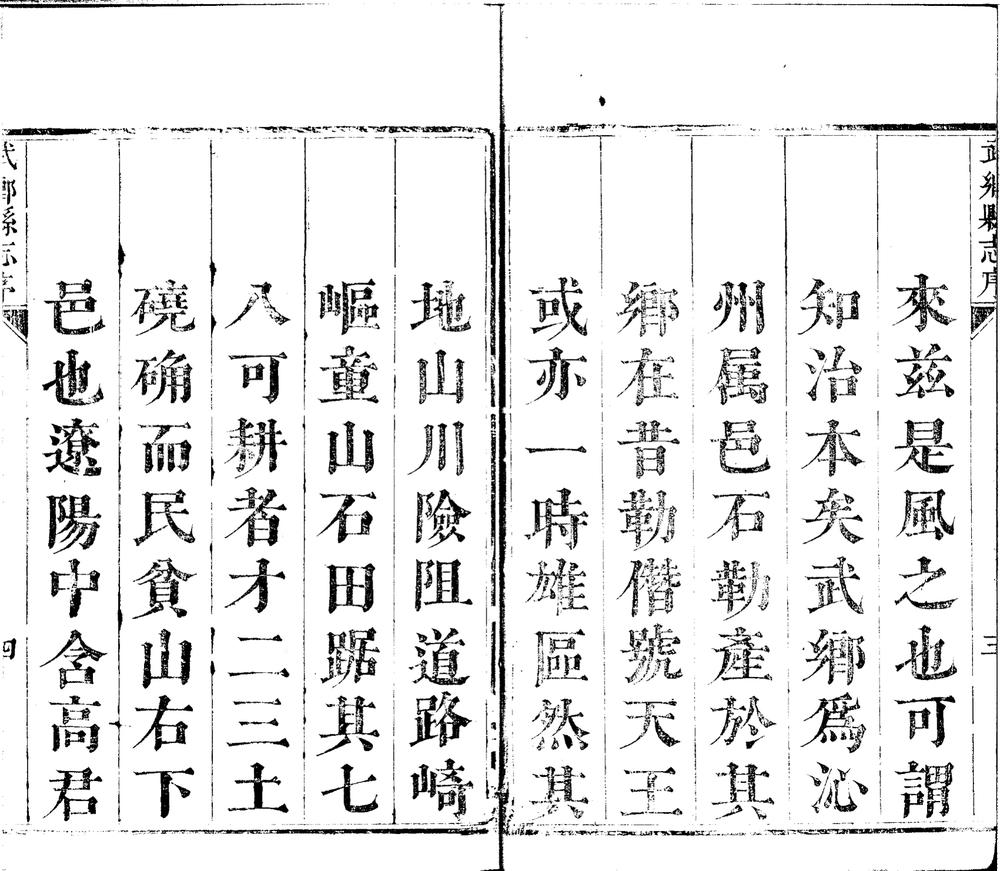 武鄉縣志序
三
來兹是風之也可謂
知治本矣武鄉爲沁
州属邑石勒產於其
鄉在昔勒僭號天王
或亦一時雄區然其
地山川險阻道路崎
嶇童山石田踞其七
八可耕者才二三土
磽确而民貧山右下
邑也遼陽中含高君
武鄉縣志序
四